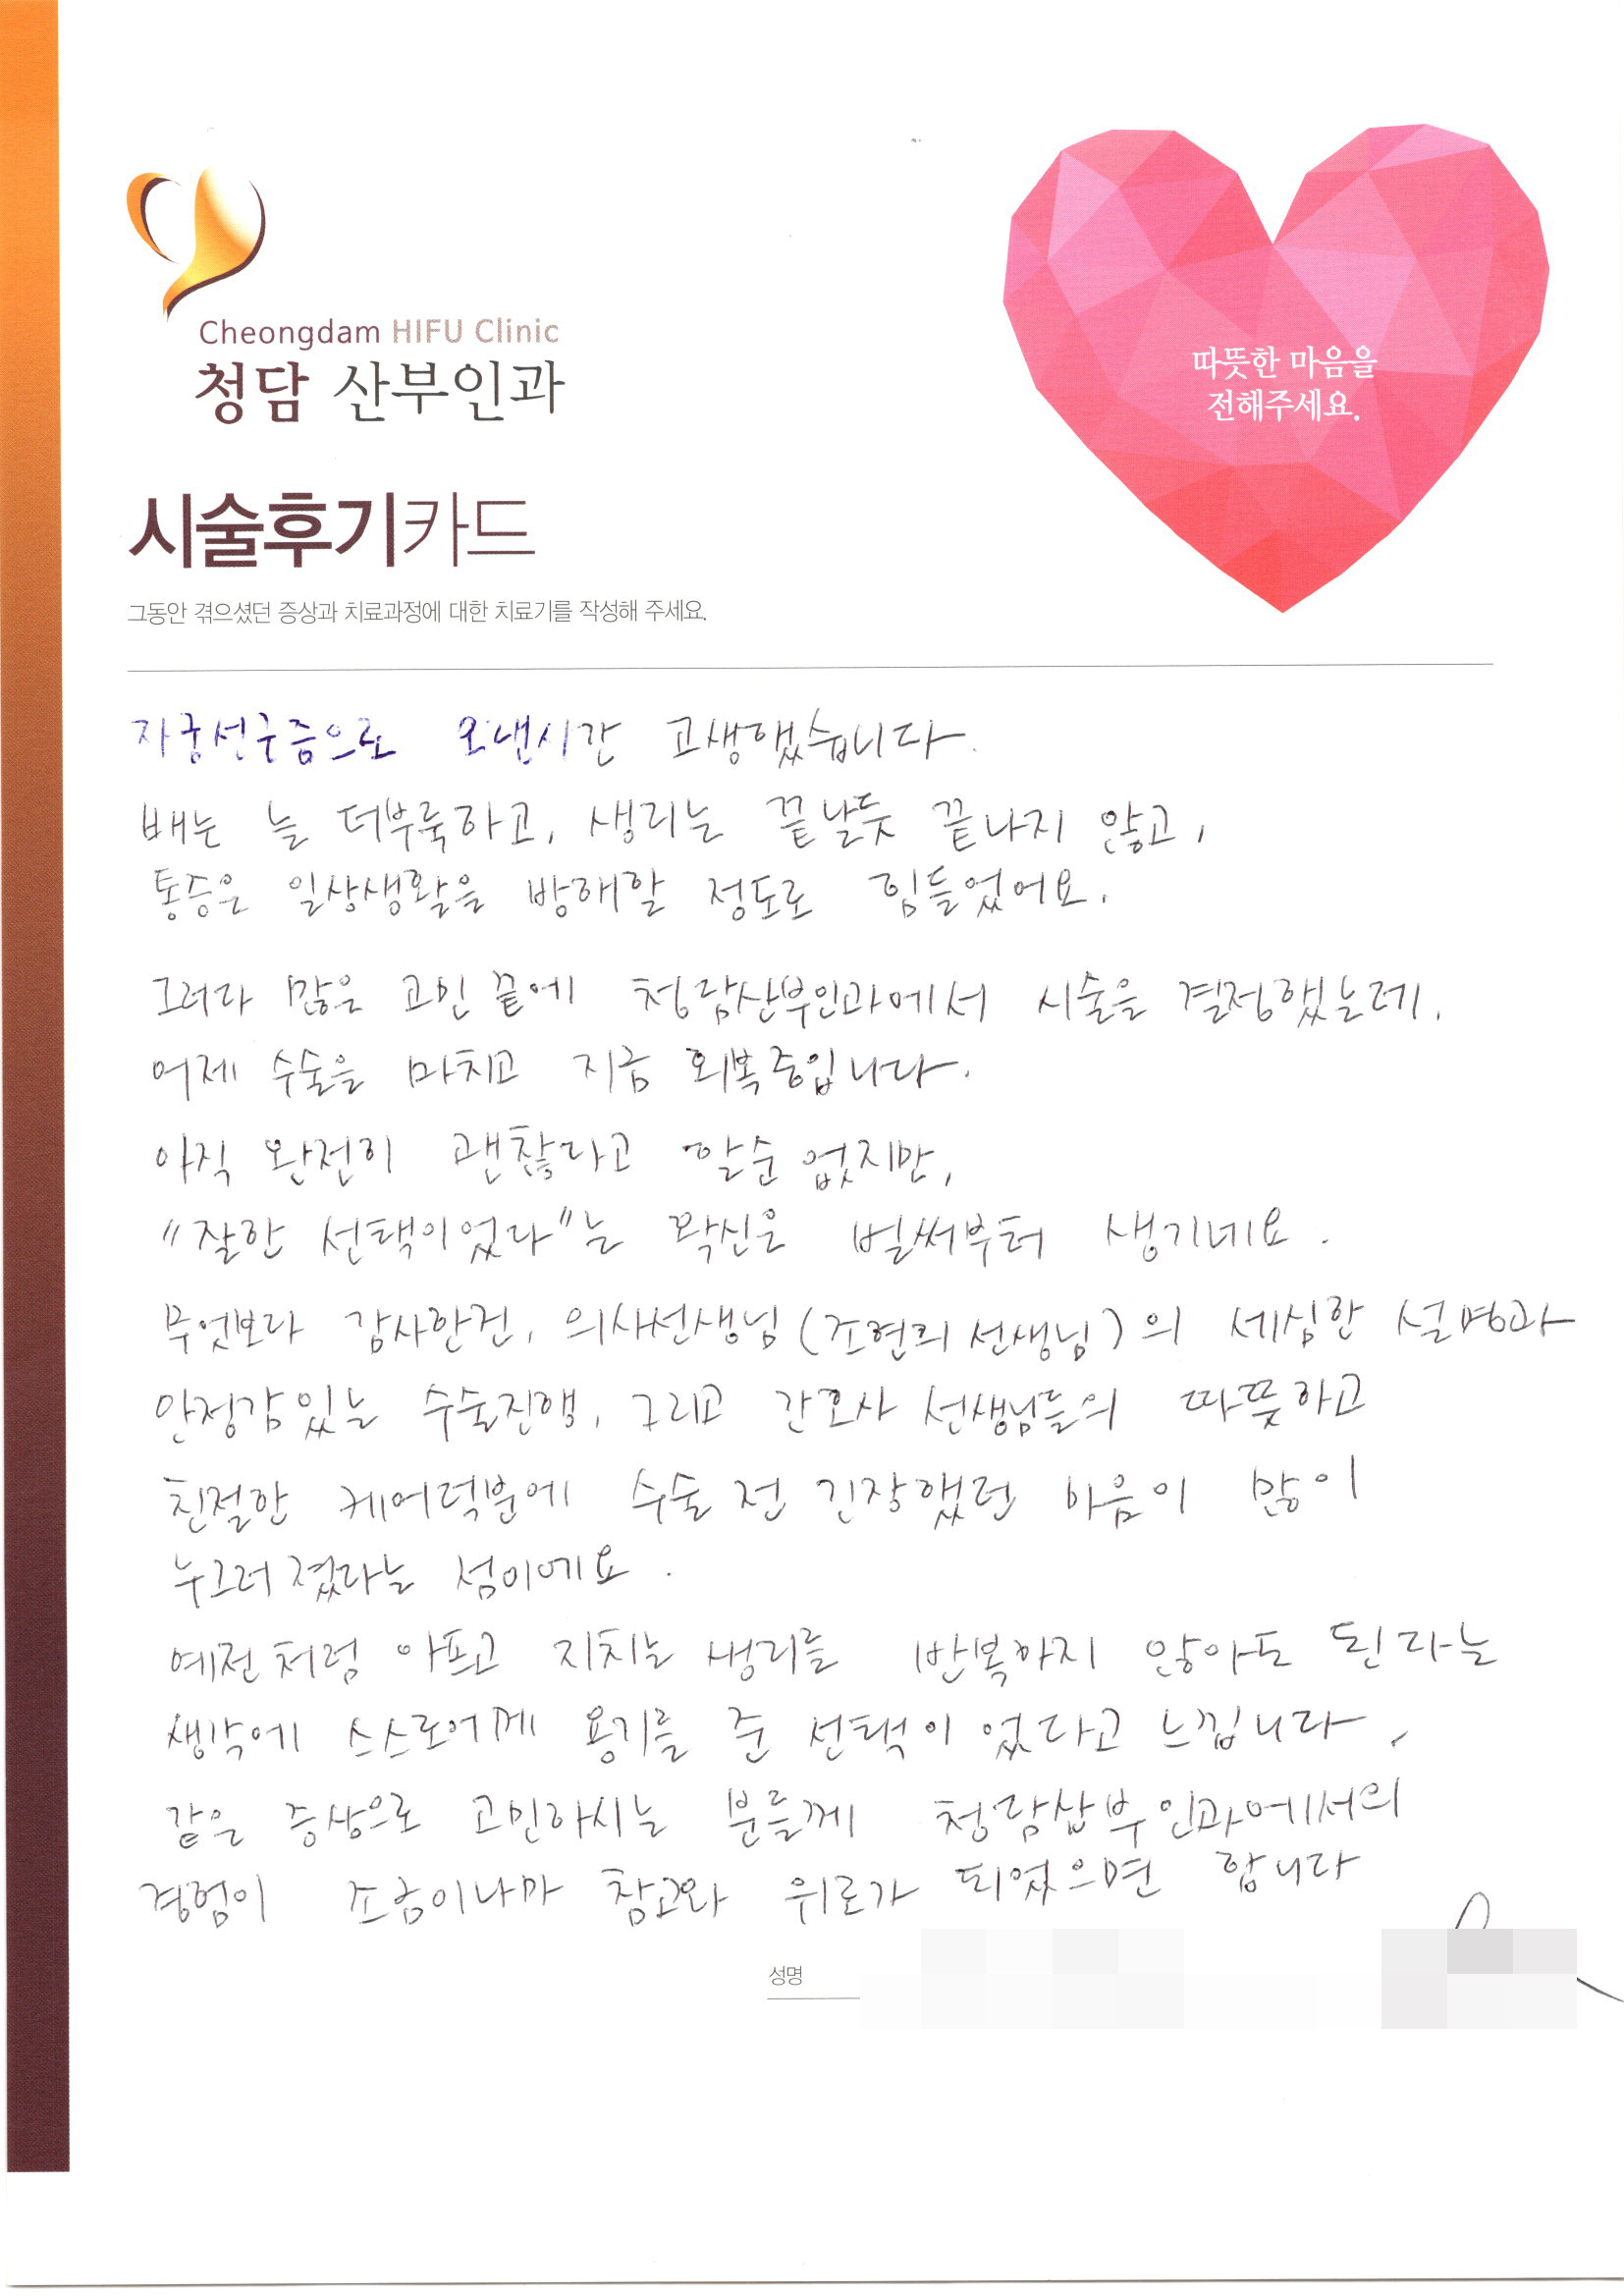 Cheongdam HIFU Clinic
청담 산부인과
따뜻한 마음을
전해주세요.
시술후기카드
그동안 겪으셨던 증상과 치료과정에 대한 치료기를 작성해 주세요.
자궁선근증으로 오랜시간 고생했습니다.
배는 늘 더부룩하고, 생리는 끝날듯 끝나지 않고,
통증은 일상생활을 방해할 정도로 힘들었어요.
그러다 많은 고민 끝에 청담산부인과에서 시술을 결정했는데,
어제 수술을 마치고 지금 회복중입니다.
아직 완전히 괜찮다고 할순 없지만,
"잘한 선택이었다"는 확신은 벌써부터 생기네요.
무엇보다 감사한건, 의사선생님(조현희 선생님)의 세심한 설명과
안정감있는 수술진행, 그리고 간호사 선생님들의 따뜻하고
친절한 케어덕분에 수술 전 긴장했던 마음이 많이
누그러졌다는 점이에요.
예전처럼 아프고 지치는 생리를 반복하지 않아도 된다는
생각에 스스로에게 용기를 준 선택이었다고 느낍니다.
같은 증상으로 고민하시는 분들께 청담산부인과에서의
경험이 조금이나마 참고와 위로가 되었으면 합니다
성명